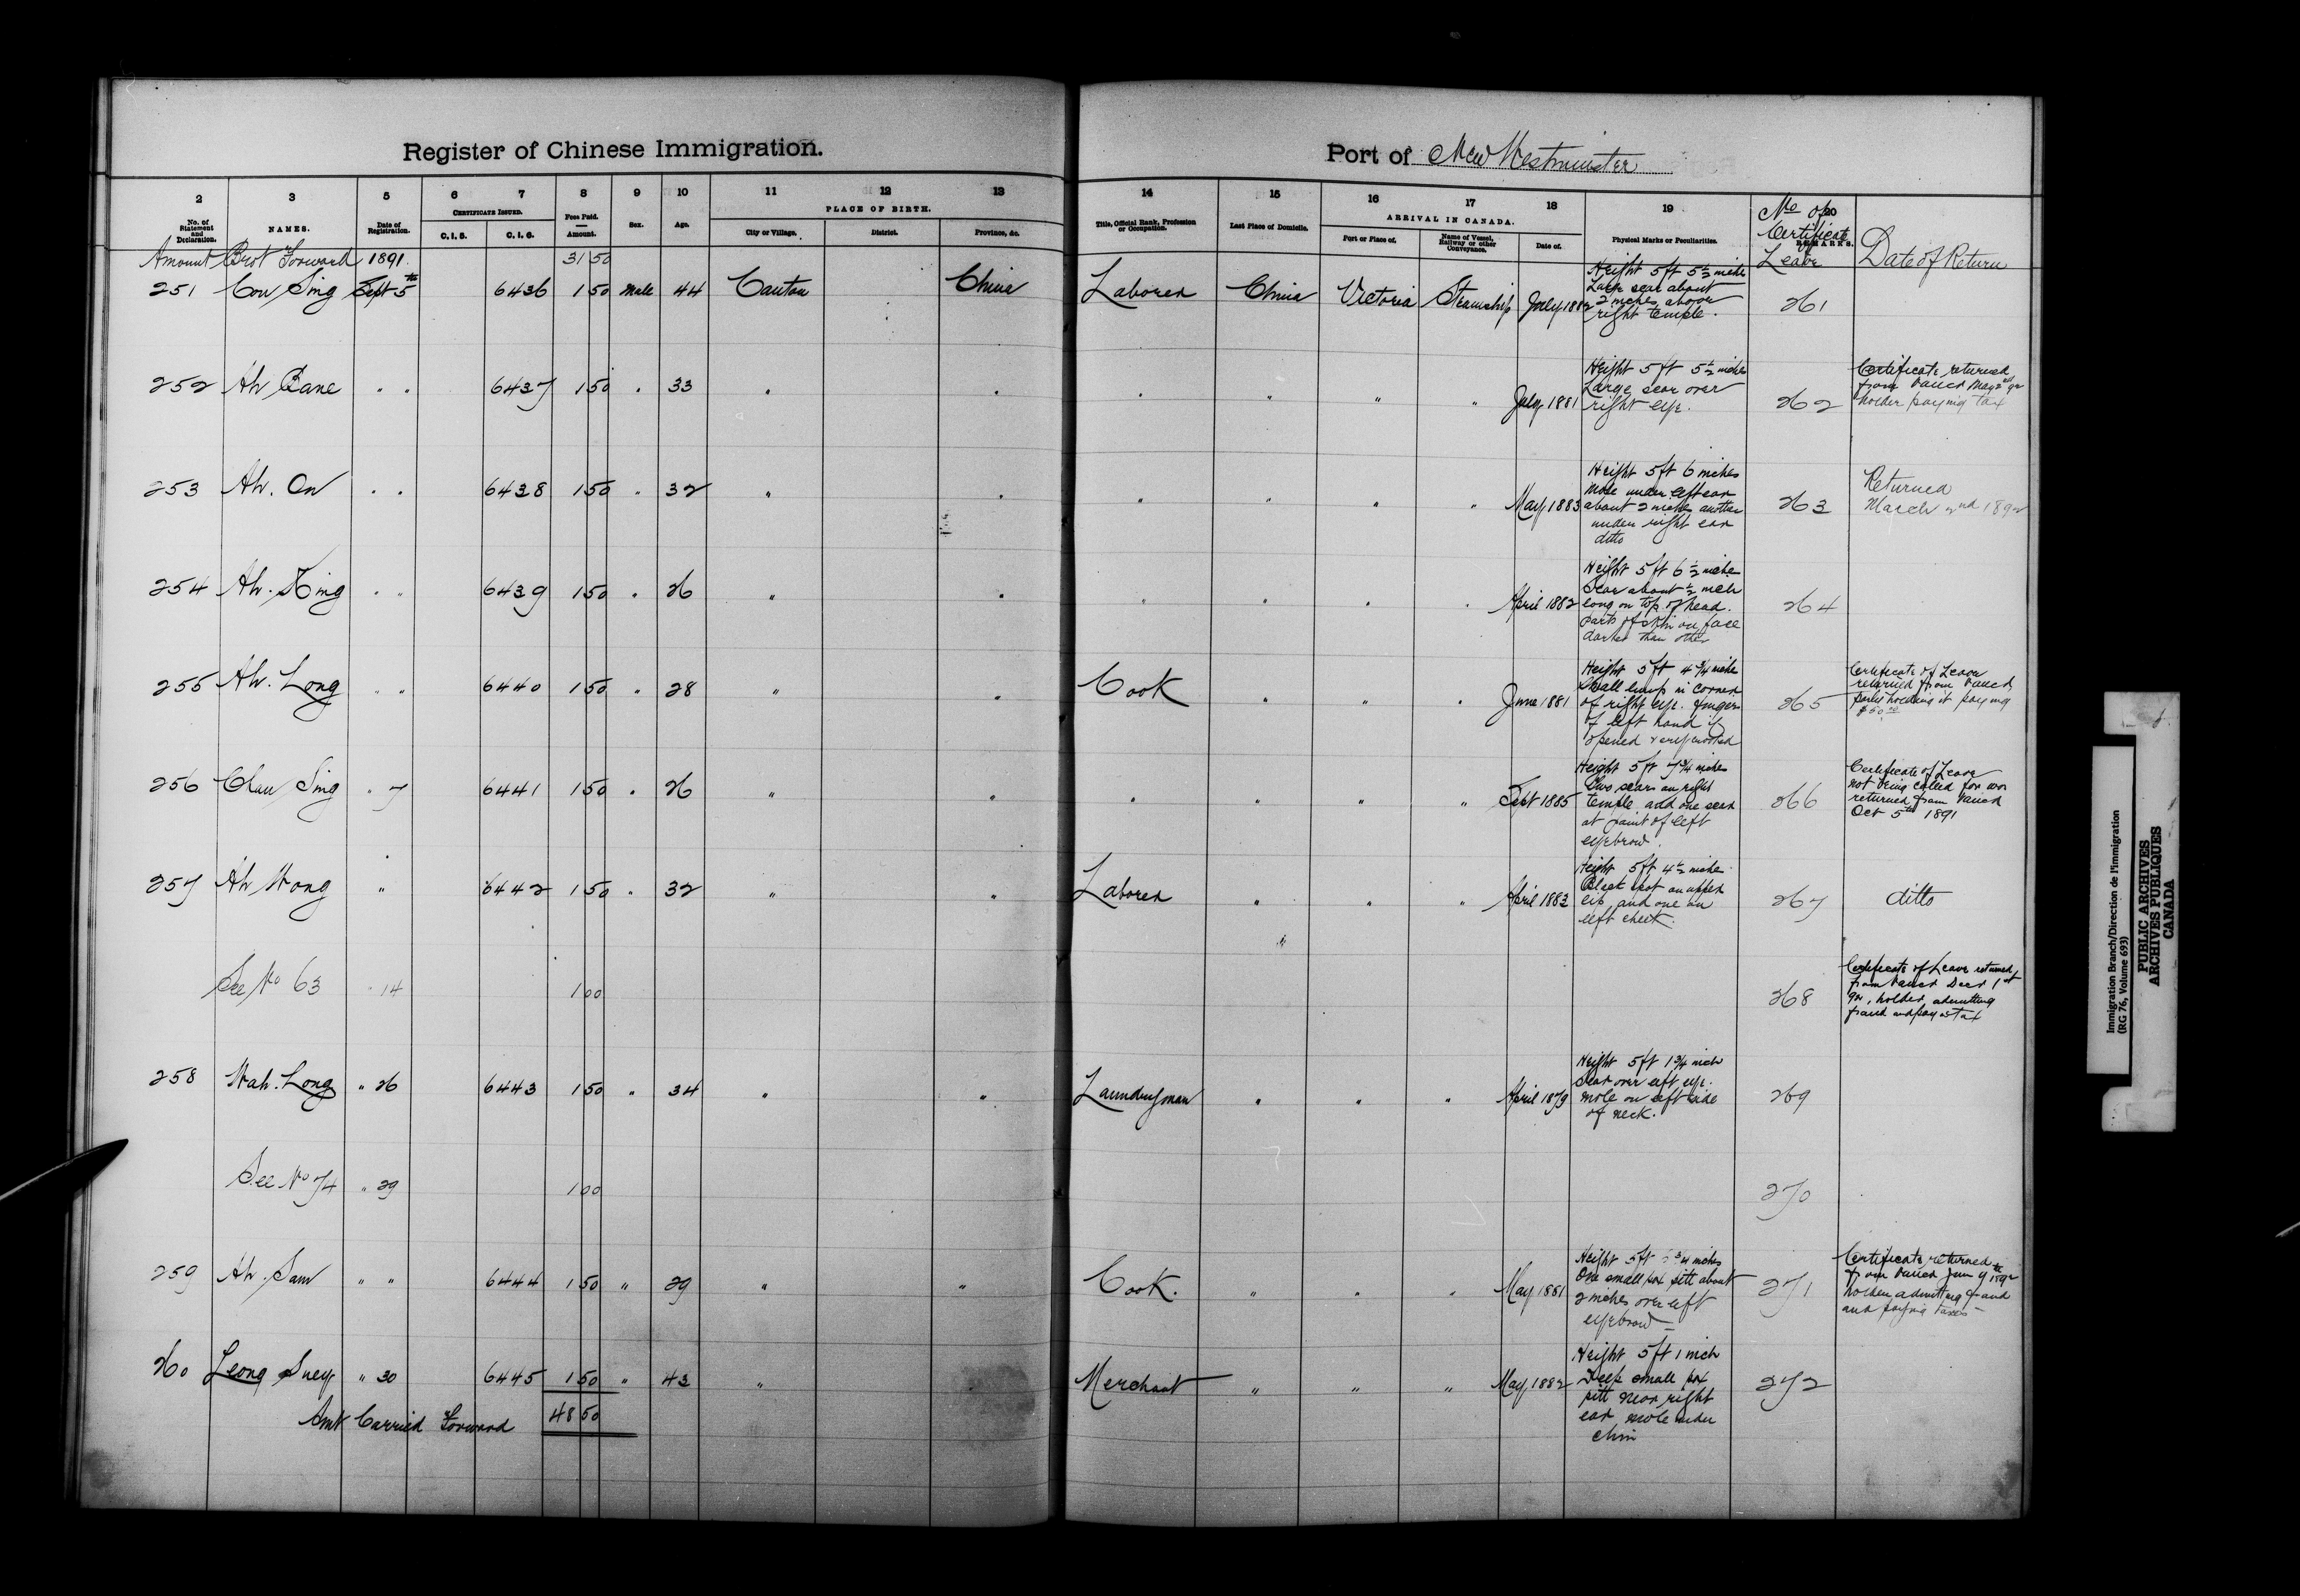 Register of Chinese Immigration.
Port of New Westminster
2 3 5 6 7 8 9 10 11 12 13 14 15 16 17 18 19 20
No. of Statement and Declaration. NAMES. Date of Registration. CERTIFICATE ISSUED. C.I.5. C.I.6. Fees Paid. Amount. Sex. Age. PLACE OF BIRTH. City or Village. District. Province, &c. Title, Official Rank, Profession or Occupation. Last Place of Domicile. ARRIVAL IN CANADA. Port or Place of. Name of Vessel, Railway or other Conveyance. Date of. Physical Marks or Peculiarities. REMARKS. No of Certificate Leave Date of Return
Amount Brot Forward 1891 31 50
251 Cou Sing Sept 5th 6436 1 50 Male 44 Canton China Laborer China Victoria Steamship July 1882
Height 5 ft 5½ inche
Large scar about
2 inches above
right temple.
261
252 Ah Bane " " 6437 1 50 " 33 " " " " " " July 1881
Height 5 ft 5½ inches
Large scar over
right eye.
262
Certificate returned
from Vancr May 2nd 92
holder paying tax
253 Ah. On " " 6438 1 50 " 32 " " " " " " May 1883
Height 5 ft 6 inches
Mole under left ear
about 2 inches another
under right ear
ditto
263
Returned
March 2nd 1892
254 Ah. King " " 6439 1 50 " 26 " " " " " " April 1882
Height 5 ft 6½ inche
Scar about ½ inch
long on top of head.
parts of skin on face
darker than other
264
255 Ah. Long " " 6440 1 50 " 28 " " Cook " " " June 1881
Height 5 ft 4¾ inche
Small lump in corner
of right eye. fingers
of left hand if
opened very crooked
265
Certificate of Leave
returned from Vancr
party holding it paying
$50.00
256 Chau Sing " 7 6441 1 50 " 26 " " " " " " Sept 1885
Height 5 ft 7¾ inches
Two scars on right
temple and one scar
at point of left
eyebrow.
266
Certificate of Leave
not being called for was
returned from Vancr
Oct 5th 1891
257 Ah Wong " 6442 1 50 " 32 " " Laborer " " " April 1883
Height 5 ft 4½ inches
Black spot on upper
lip and one on
left cheek.
267 ditto
See No 63 " 14 1 00 268
Certificate of Leave returned
from Vancr Decr 1st
92, holder admitting
fraud and pays tax
258 Wah. Long " 26 6443 1 50 " 34 " " Laundryman " " " April 1879
Height 5 ft 1¾ inch
Scar over left eye.
mole on left side
of neck.
269
See No 74 " 29 1 00 270
259 Ah. Sam " " 6444 1 50 " 29 " " Cook. " " " May 1881
Height 5 ft ¾ inches
One small pox pitt about
2 inches over left
eyebrow
271
Certificate returned
from Vancr Jun 9th 1892
holder admitting fraud
and paying taxes
260 Leong Suey " 30 6445 1 50 " 43 " " Merchant " " " May 1882
Height 5 ft 1 inch
Deep small pox
pitt near right
ear mole under
chin
272
Amt Carried Forward 48 50
Immigration Branch/Direction de l'immigration
(RG 76, Volume 693)
PUBLIC ARCHIVES
ARCHIVES PUBLIQUES
CANADA